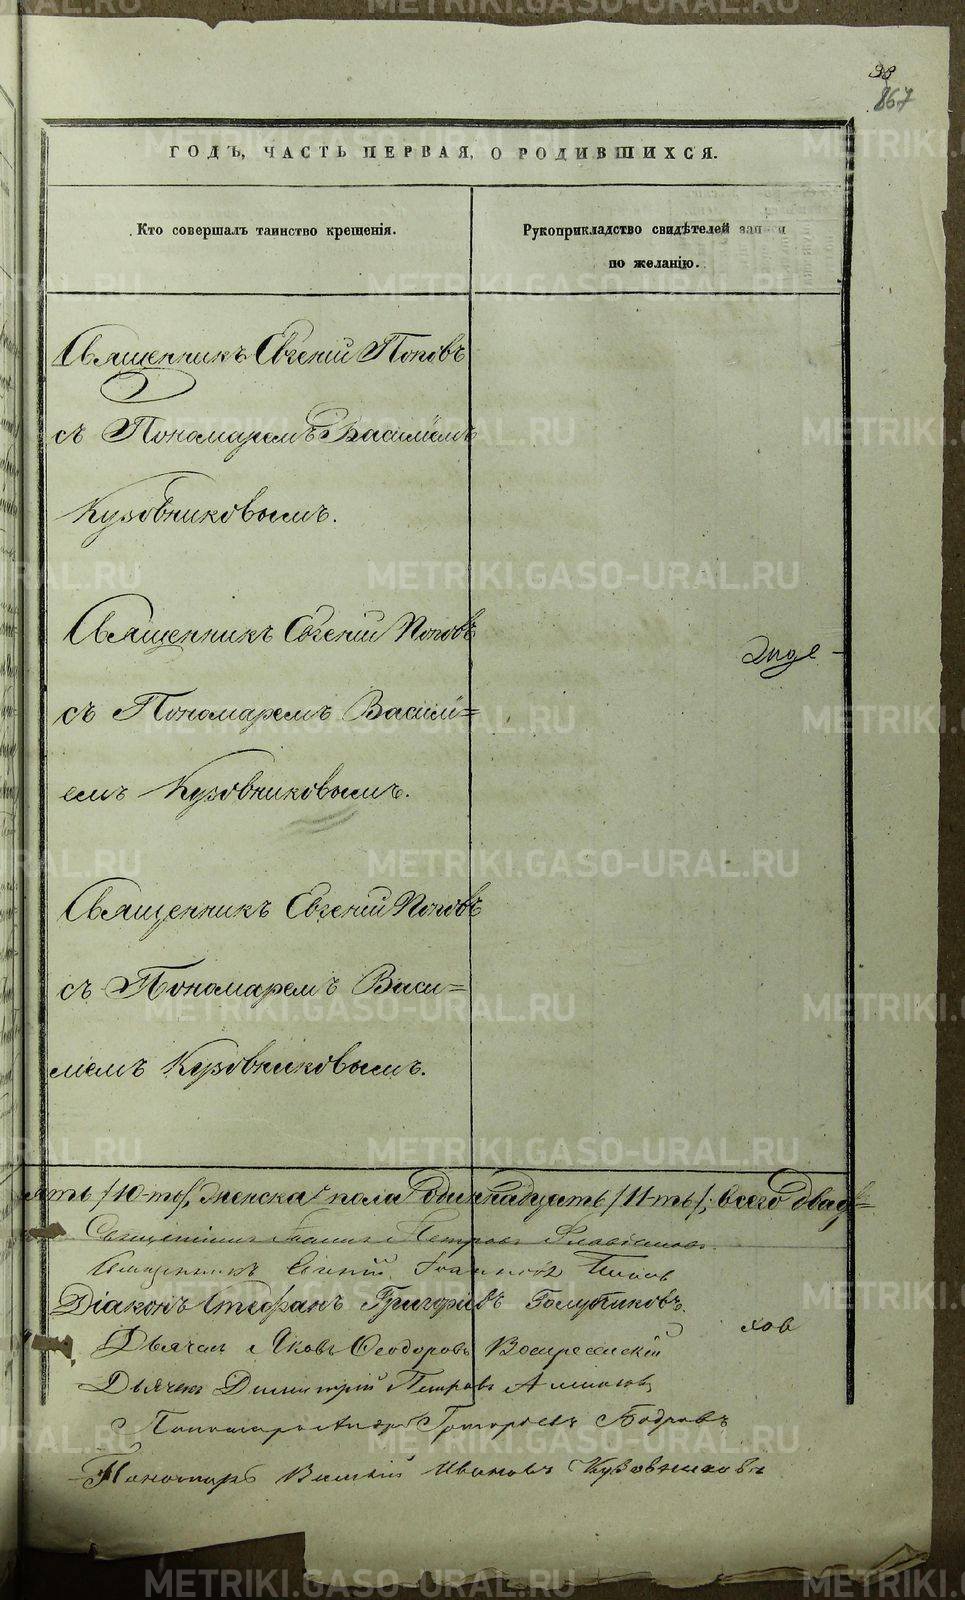 98
867
ГОДЪ, ЧАСТЬ ПЕРВАЯ, О РОДИВШИХСЯ.
Кто совершалъ таинство крещенія.
Рукоприкладство свидѣтелей записи
по желанію.
Священникъ Евгеній Поповъ
съ Пономаремъ Василіемъ
Кузовниковымъ.
Священникъ Евгеній Поповъ
съ Пономаремъ Василі=
емъ Кузовниковымъ.
Священникъ Евгеній Поповъ
съ Пономаремъ Васи=
ліемъ Кузовниковымъ.
ять /10-ть/, женска пола одиннадцать /11-ть/; всего двад=
Священникъ Іоаннъ Петровъ
Священникъ Евгеній Поповъ
Діаконъ Стефанъ Григорьевъ Голутиковъ.
хов
Дьячекъ Яковъ Ѳеодоровъ Воскресенскій
Дьячекъ Димитрій Петровъ
Пономарь Григорьевъ Бодровъ
Пономарь Василій Ивановъ Кузовниковъ
METRIKI.GASO-URAL.RU